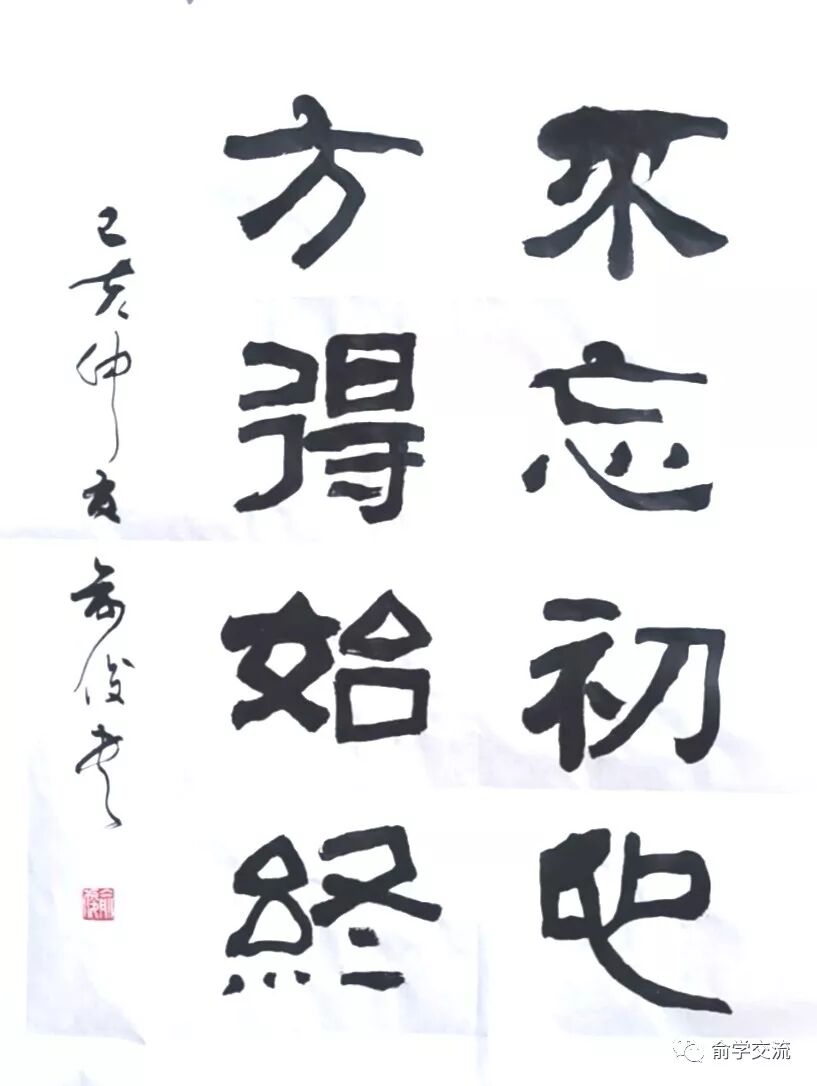 不忘初心
方得始終
己亥仲夏俞俊书
俞学交流